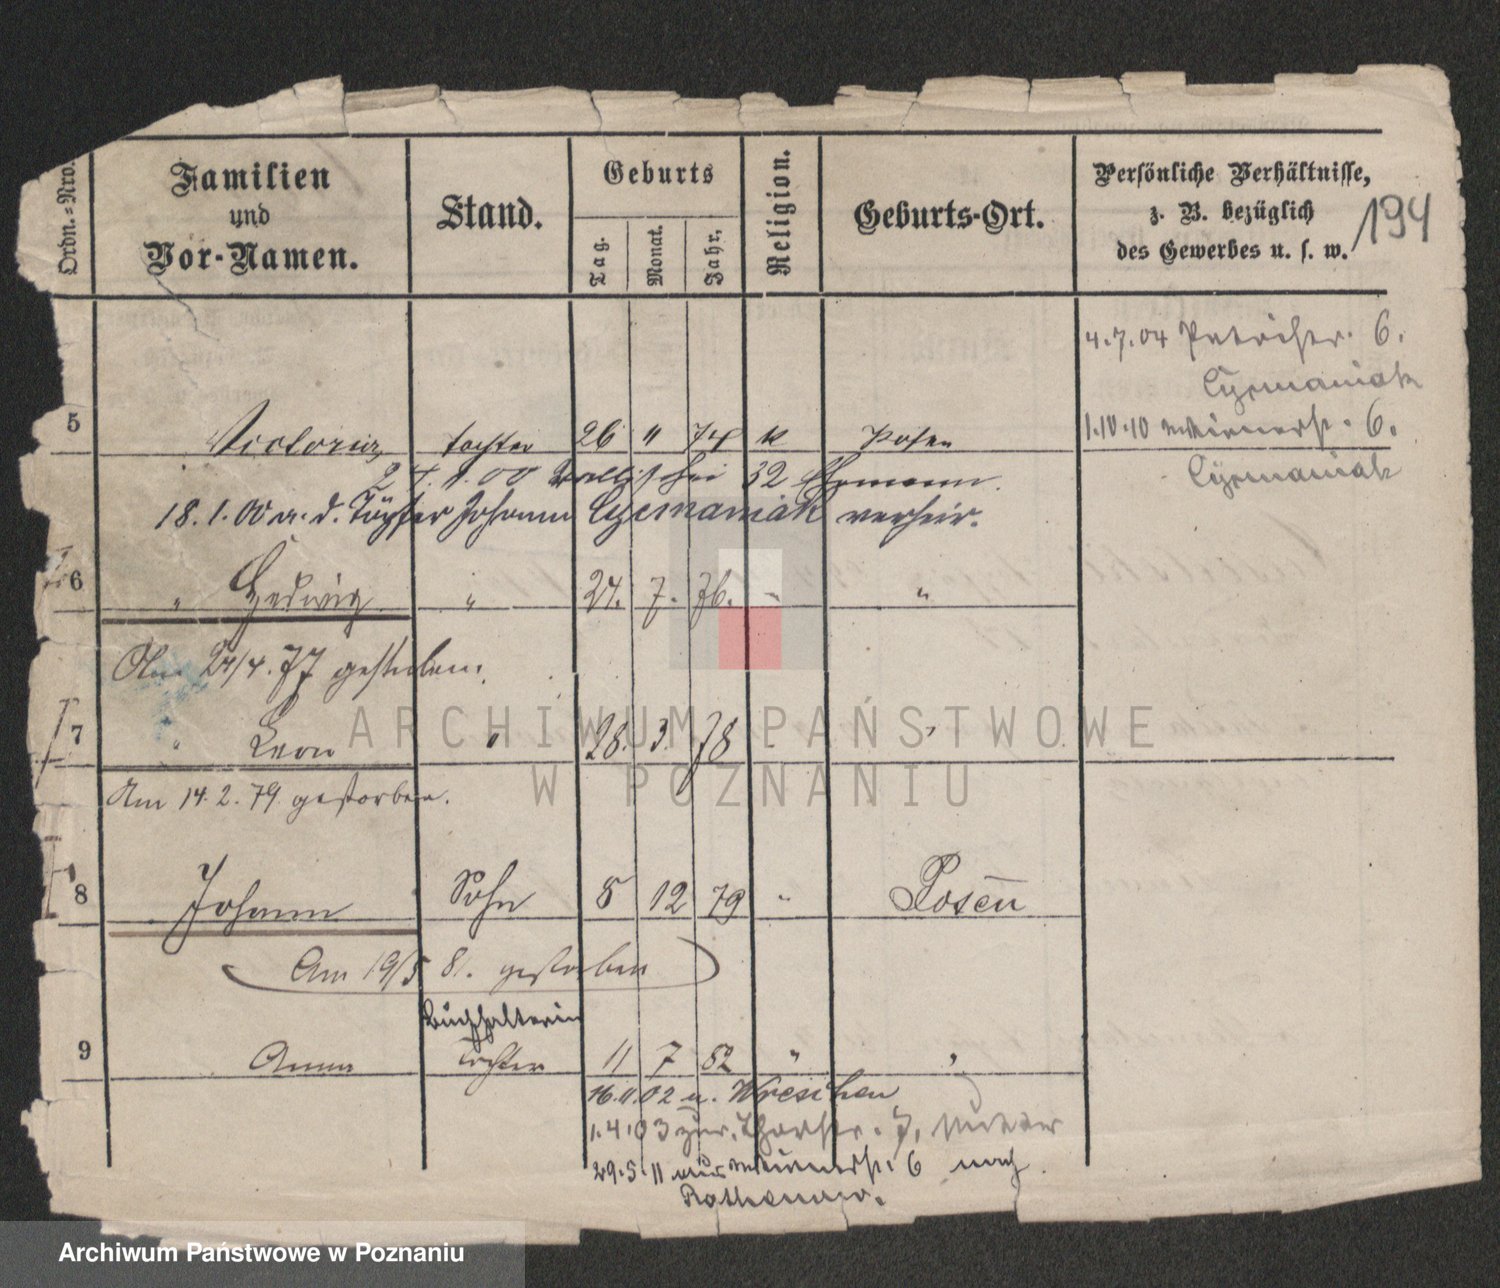 Ordn.=Nro.
Familien
und
Vor-Namen.
Stand.
Geburts
Tag.
Monat.
Jahr.
Religion.
Geburts-Ort.
Persönliche Verhältnisse,
z. B. bezüglich
des Gewerbes u. s. w.
194
4.7.04 6.
Cyrmaniak
5 Victoria Tochter 26 " 74 k Posen
1.10.10 6.
Cyrmaniak
24.1.00 Wallischei 32 Ehemann.
18.1.00 a. d. Töpfer Johann Cyrmaniak verheir.
6 " Hedwig " 24. 7. 76. - "
Am 24/4. 77 gestorben.
7 " Leon " 28. 3. 78 "
Am 14. 2. 79 gestorben.
8 Johann Sohn 8 12 79 " Posen
Am 19/5 81. gestorben
Buchhalterin
9 Anna Tochter 11 7 82 " "
16.11.02 n. Wreschen
1.4.03 zur. 7, Mutter
29.5.11 aus 6 nach
ARCHIWUM PAŃSTWOWE
W POZNANIU
Archiwum Państwowe w Poznaniu